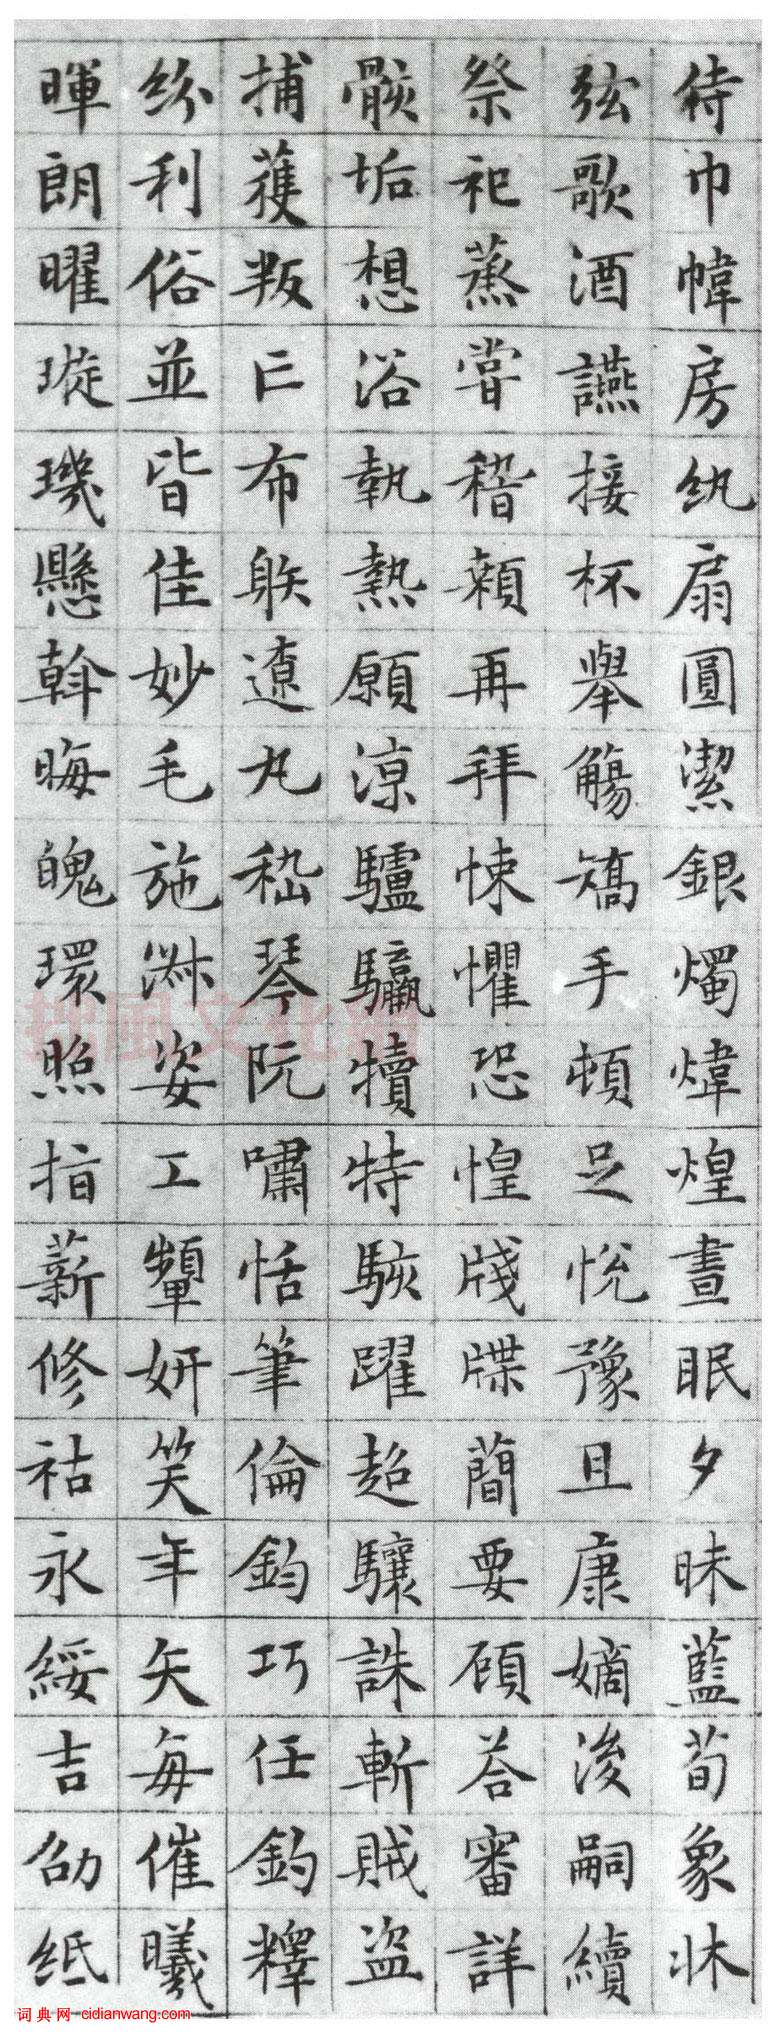 侍巾幃房紈扇圓潔銀燭煒煌晝眠夕昧藍荀象牀
弦歌酒讌接杯舉觴矯手頓足悅豫且康嫡後嗣續
祭祀蒸嘗稽顙再拜悚懼恐惶牋牒簡要顧答審詳
骸垢想浴執熱願涼驢騾犢特駭躍超驤誅斬賊盜
捕獲叛亡布射遼丸嵇琴阮嘯恬筆倫鈞巧任釣釋
紛利俗並皆佳妙毛施淑姿工顰妍笑年矢每催曦
暉朗曜璇璣懸斡晦魄環照指薪修祜永綏吉劭紙
拙風文化網
词典网 cidianwang.com